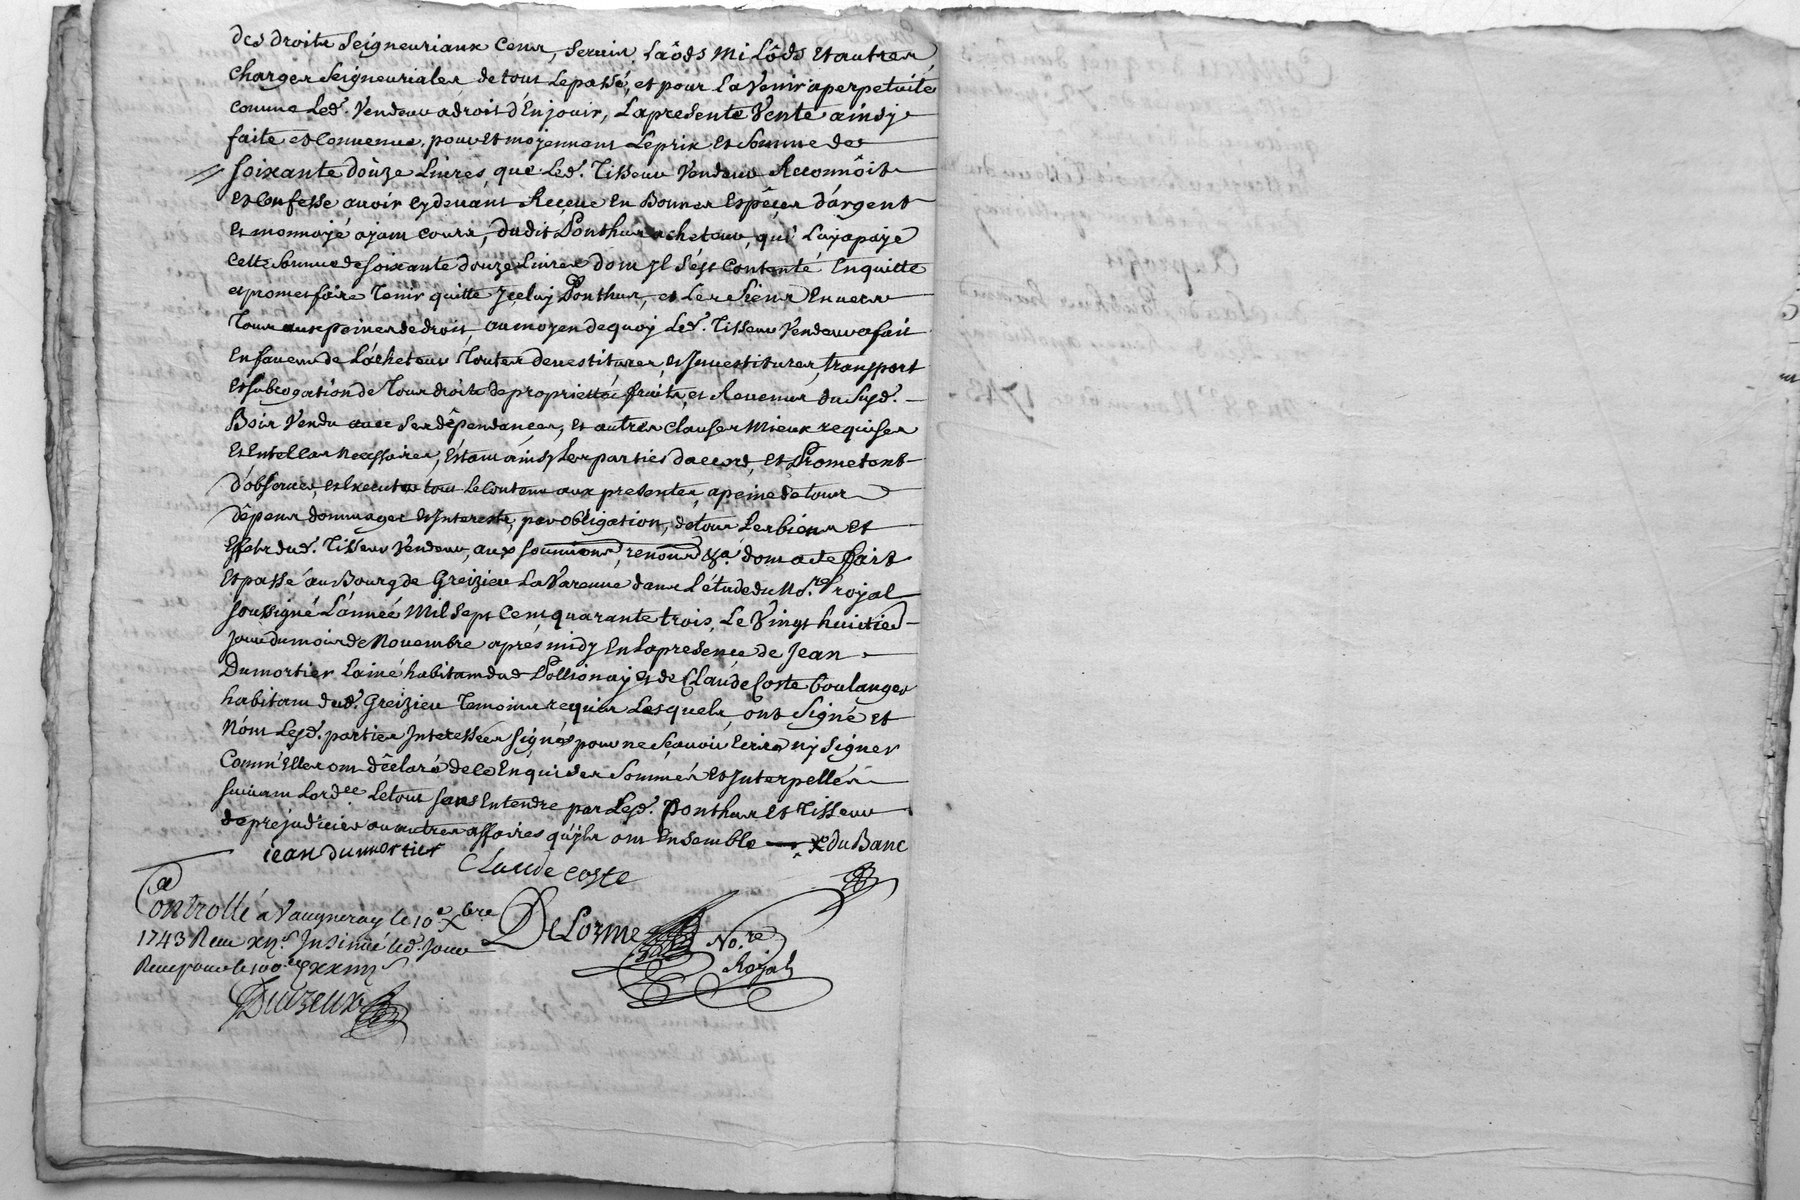 des droits Seigneuriaux Cens, Servis, Laôds Milôds et autres
charges Seigneuriales de tout Le passé, et pour L'avenir a perpetuité
comme Led. Vendeur a droit d'En jouir, La presente Vente ainsy
faite et Convenue, pour et moyennant Le prix et Somme de
soixante douze Livres, que Led. Tisseur Vendeur Reconnôit
et Confesse avoir cy devant Reçeue En Bonnes Espéces d'argent
et monnoyé ayant cours, dudit Ponthus acheteur, qui L'a payé
cette Somme de soixante douze Livres dont jl s'est Contenté Enquitte
et promet faire Tenir quitte jceluy Ponthus, et Les Siens Envers
Tous aux peines de droit, au moyen de quoy Led. Tisseur Vendeur a fait
En faveur de L'acheteur Toutes devestitures, et jnvestitures, transport
et subrogation de Tous droits de proprietté, fruits, et Revenus du Susd.
Bois Vendu avec Ses dêpendances, et autres Clauses Mieux requises
et En tel cas necessaires, Estant ainsy Les parties d'accord, et Promettent
d'observer, et Executer tout Le Contenu aux presentes, a peine de tous
dêpens dommages et Interests, par obligation, de tous Les biens et
Effets dud. Tisseur Vendeur, aux soumions, renons &a. dont acte fait
et passé au Bourg de Greizieu La Varenne dans L'étude du No.re royal
soussigné L'année Mil Sept Cent quarante trois, Le Vingt huitie
jour du mois de Novembre aprés midy En La presence de Jean
Dumortier L'ainé habitant dud Pollionay et de Claude Coste boulanger
habitant dud. Greizieu Temoins requis Lesquels, ont Signé et
Nom Lesd. parties Interessées signés pour ne Sçavoir Ecrire ny signer
Comm'Elles ont dêclaré de ce Enquises Sommés et Interpellés
suivant Lord.ce Le tout sans Entendre par Lesd. Ponthus et Tisseur
de prejudicier aux autres affaires qu'jls ont Ensemble X du Banc
jean dumortier
Claude coste
Controllé a Vaugneray le 10e Xbre
1743 Receu xijs. Insinué led. jour
Receu pour le 100e
DeLorme No.re
Royal